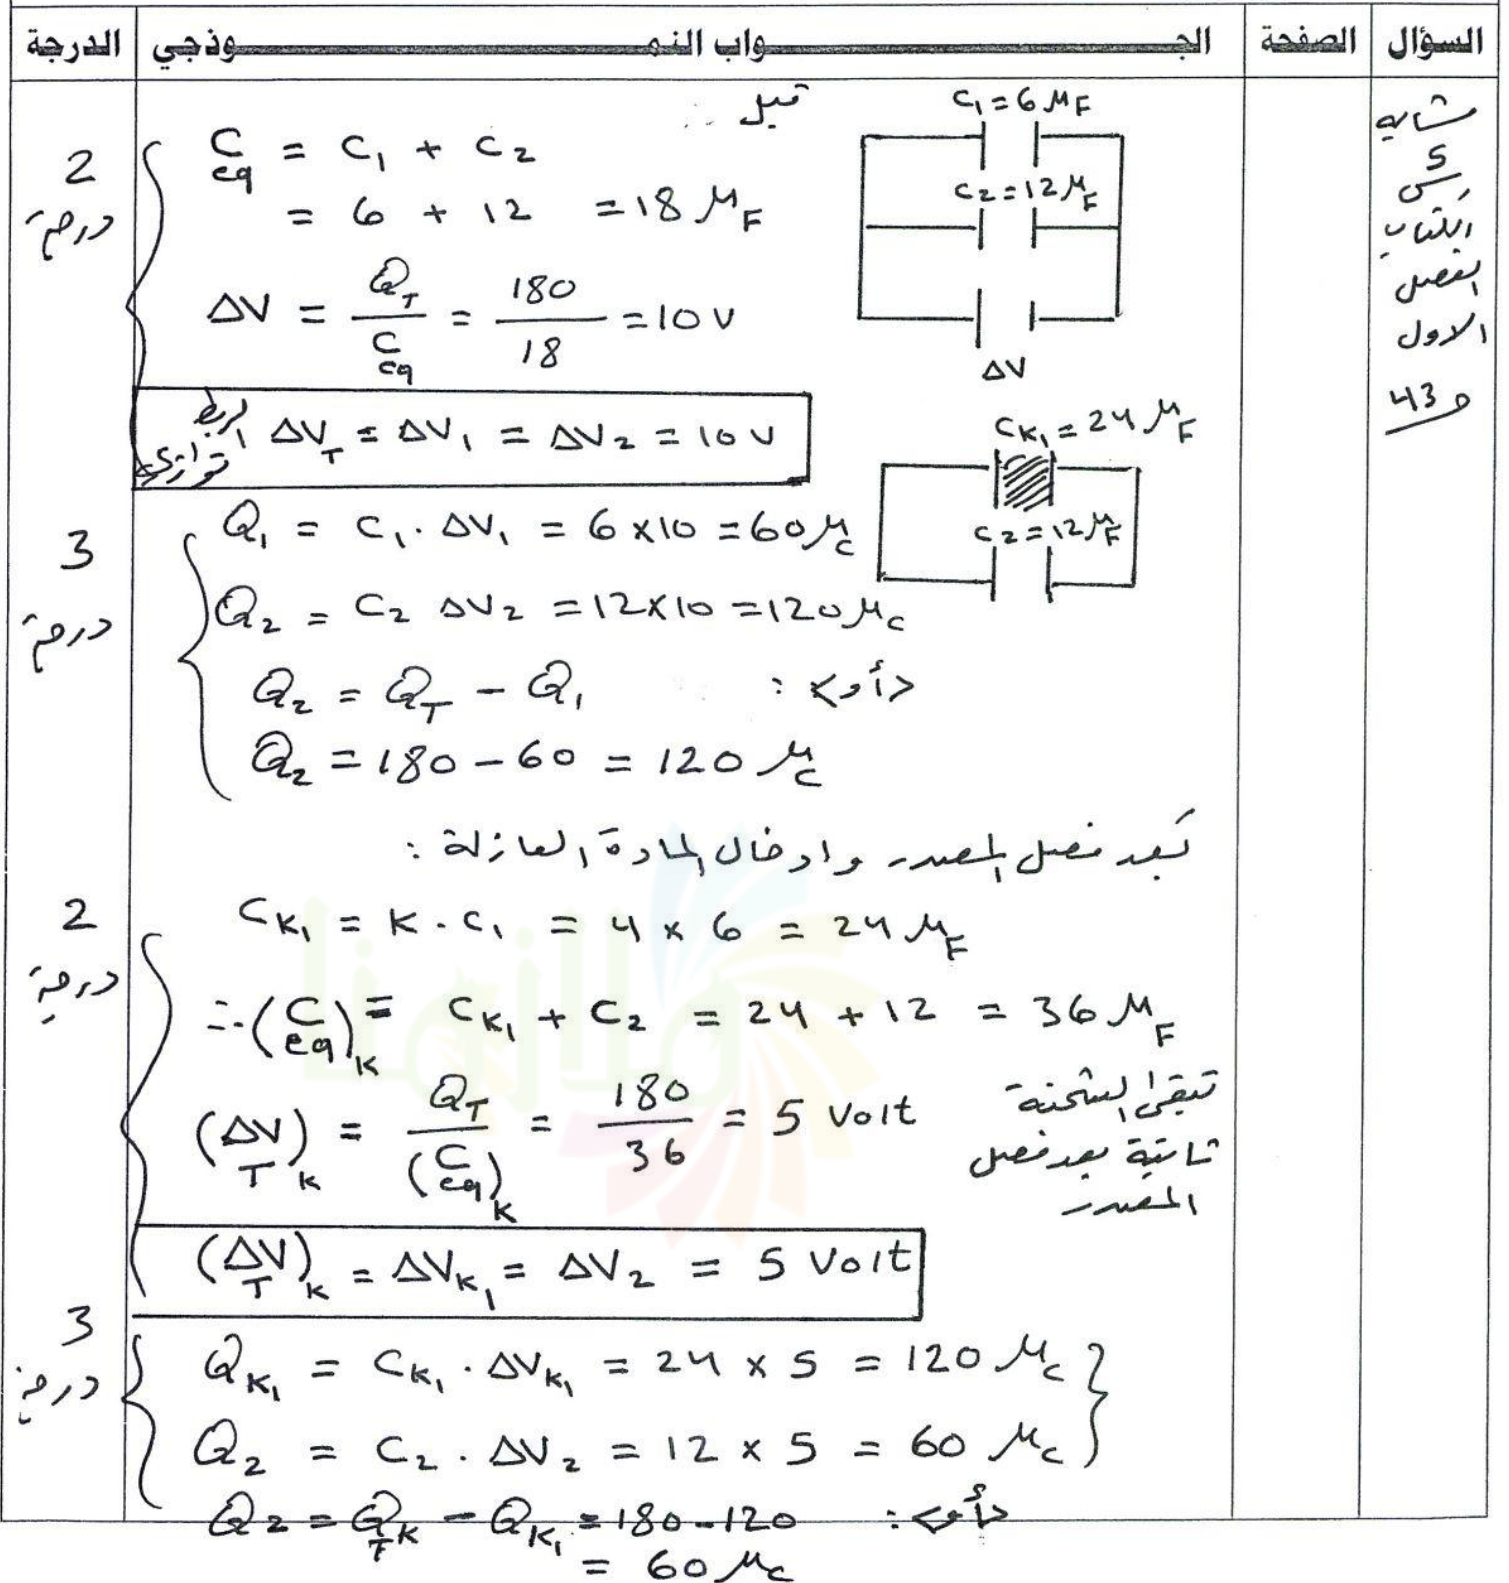 السؤال الصفحة الجـــواب النمـــوذجي الدرجة
مشابه
5
س
الكتاب
الفصل
الاول
ص 43
قبل
C₁ = 6 μF
C₂ = 12 μF
ΔV
2
درجة
Ceq = C₁ + C₂
= 6 + 12 = 18 μF
ΔV = Q_T / Ceq = 180 / 18 = 10 V
الربط توازي ΔV_T = ΔV₁ = ΔV₂ = 10 V
C_K₁ = 24 μF
C₂ = 12 μF
3
درجة
Q₁ = C₁ . ΔV₁ = 6 × 10 = 60 μC
Q₂ = C₂ ΔV₂ = 12 × 10 = 120 μC
<أو> :
Q₂ = Q_T − Q₁
Q₂ = 180 − 60 = 120 μC
بعد فصل المصدر وادخال المادة العازلة :
2
درجة
C_K₁ = K . C₁ = 4 × 6 = 24 μF
∴ (Ceq)_K = C_K₁ + C₂ = 24 + 12 = 36 μF
(ΔV_T)_K = Q_T / (Ceq)_K = 180 / 36 = 5 Volt
تبقى الشحنة
ثابتة بعد فصل
المصدر
(ΔV_T)_K = ΔV_K₁ = ΔV₂ = 5 Volt
3
درجة
Q_K₁ = C_K₁ . ΔV_K₁ = 24 × 5 = 120 μC
Q₂ = C₂ . ΔV₂ = 12 × 5 = 60 μC
<أو> :
Q₂ = Q_TK − Q_K₁ = 180 - 120
= 60 μC
ملازمنا